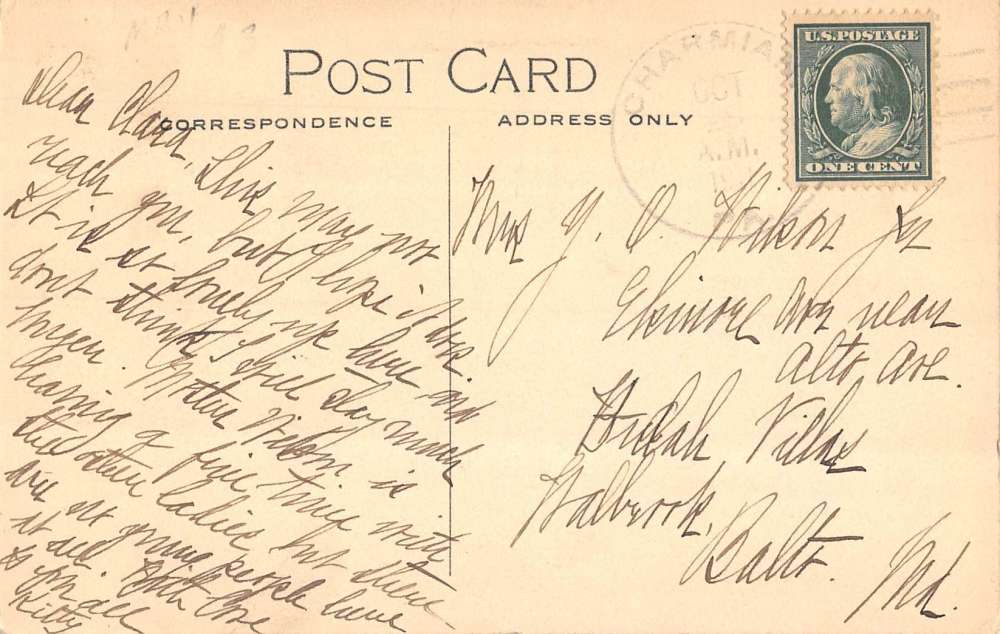 POST CARD
CORRESPONDENCE
ADDRESS ONLY
CHARMIAN
OCT
A.M.
U.S. POSTAGE
ONE CENT
Dear Clara, This may not
reach you, but I hope it does.
It is so lonely up here and
dont think I will stay much
longer. Mother Wilson is
having a fine time with
the other ladies but there
are no young people here
at all. With love
to you all
Kitty
Mrs J. O. Wilson Jr
Elsinore Ave near
Alto Ave.
Villas
Walbrook,
Balto. Md.